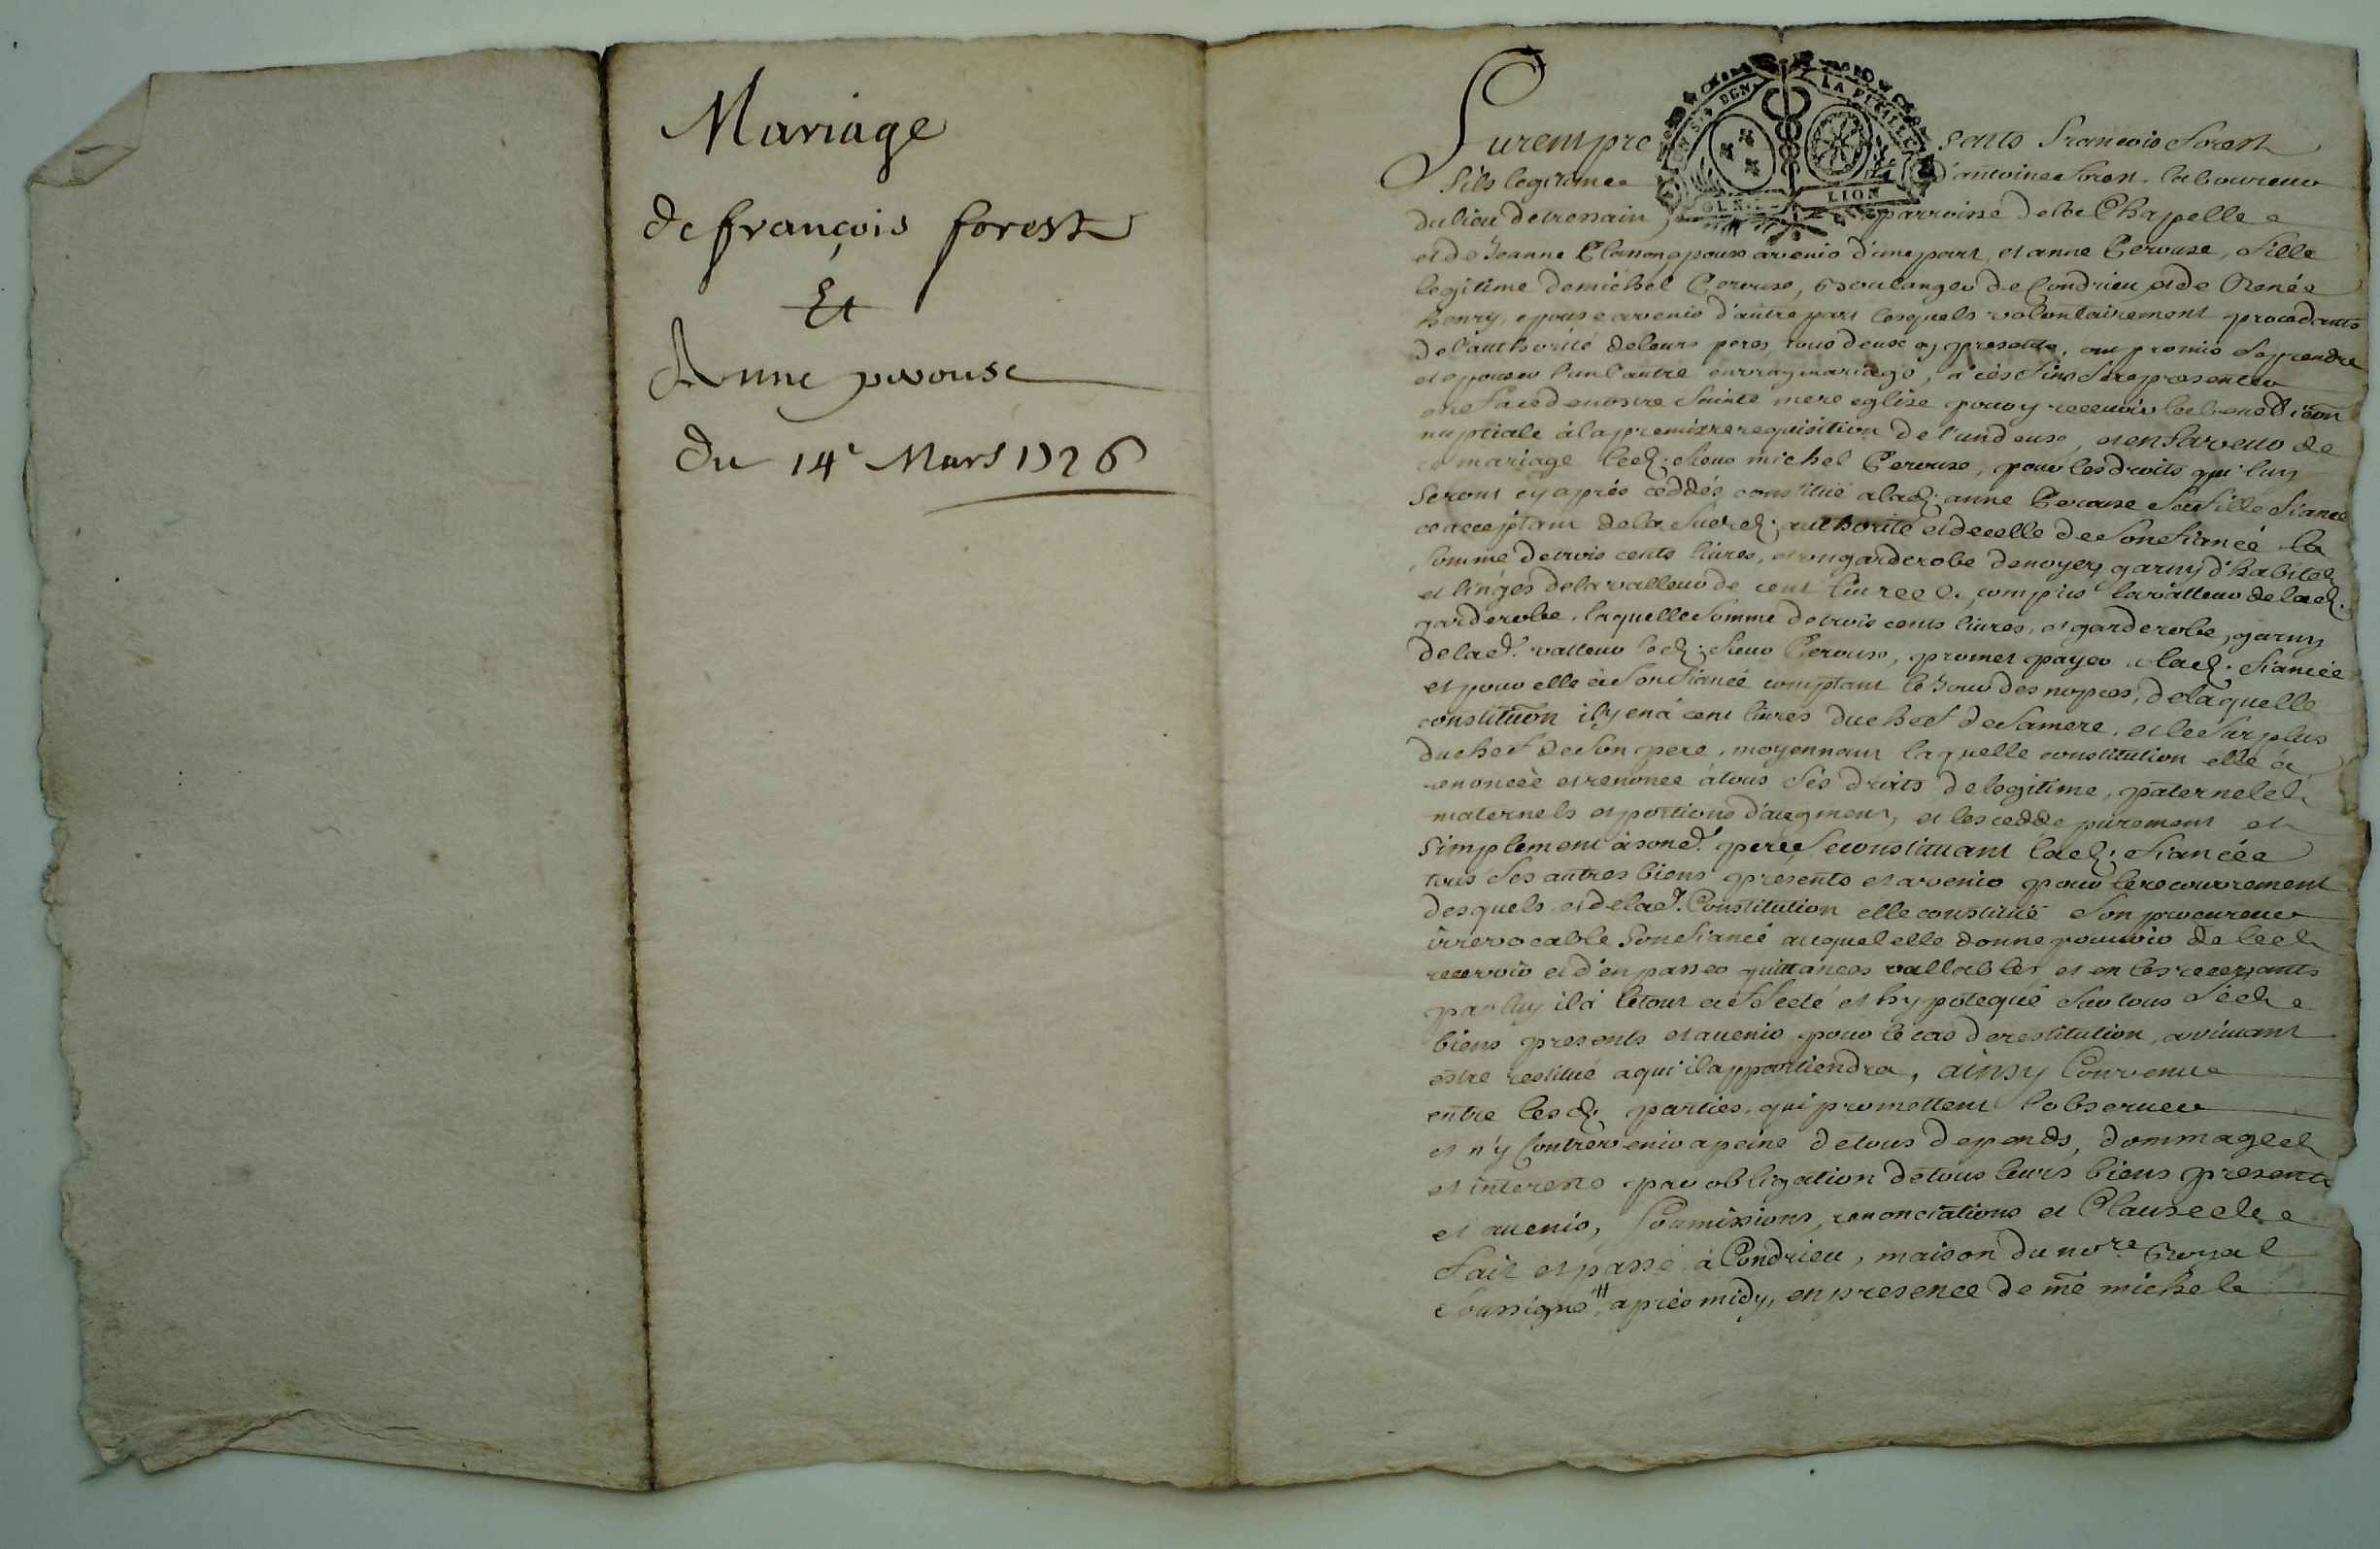 Mariage
de françois forest
Et
Anne pirouse
du 14e Mars 1726
Furent presents francois forest
fils legitime d'antoine forest laboureur
du lieu de tressain, parroisse de la Chapelle
et de Jeanne Clamon epoux avenir d'une part, et anne Perouse, fille
legitime de michel Perouse, Boulanger de Condrieu et de Renée
henry, epouse avenir d'autre part lesquels volontairement procedants
de l'authorité de leurs peres, tous deux cy presents, ont promis se prendre
et epouser l'un l'autre en vray mariage, a ces fins se representer
en face de nostre sainte mere eglise pour y recevoir la benediction
nuptiale à la premiere requisition de l'un d'eux, et en faveur de
ce mariage led. sieur michel Perouse, pour les droits qui luy
seront cy après ceddés constitüe a lad. anne Perouse sa fille fiancée
ce acceptant de la susd. authorité et de celle de son fiancé la
somme de trois cents livres, et un garderobe de noyer garny d'habits
et linges de la valleur de cent livres compris la valleur de lad.
garderobe, laquelle somme de trois cents livres, et garderobe, garny
de lad. valleur led. sieur Perouse, promet payer a lad. fiancée
et pour elle à son fiancé comptant le jour des nopces, de laquelle
constitution il y en a cent livres du chef de sa mere, et le surplus
du chef de son pere, moyennant laquelle constitution elle à
renoncée et renonce à tous ses droits de legitime, paternels
maternels et portions d'augment, et les cedde purement et
simplement à sond. pere se constituant lad. fiancée
tous ses autres biens presents et avenir pour le recouvrement
desquels et de lad. Constitution elle constitüe son procureur
irrevocable son fiancé auquel elle donne pouvoir de les
recevoir et d'en passer quittances vallables et en les recevants
par luy il à le tout affecté et hypotequé sur tous ses
biens presents et avenir pour le cas de restitution, avenant
estre restitué a qui il appartiendra, ainsy Convenu
entre lesd. parties qui promettent l'observer
et n'y Contrevenir a peine de tous depends, dommages
et interests par obligation de tous leurs biens presents
et avenir, soumissions, renonciations et Clauses
fait et passé à Condrieu, maison du nore. Royal
soussigné, après midy, en presence de me michel
LION